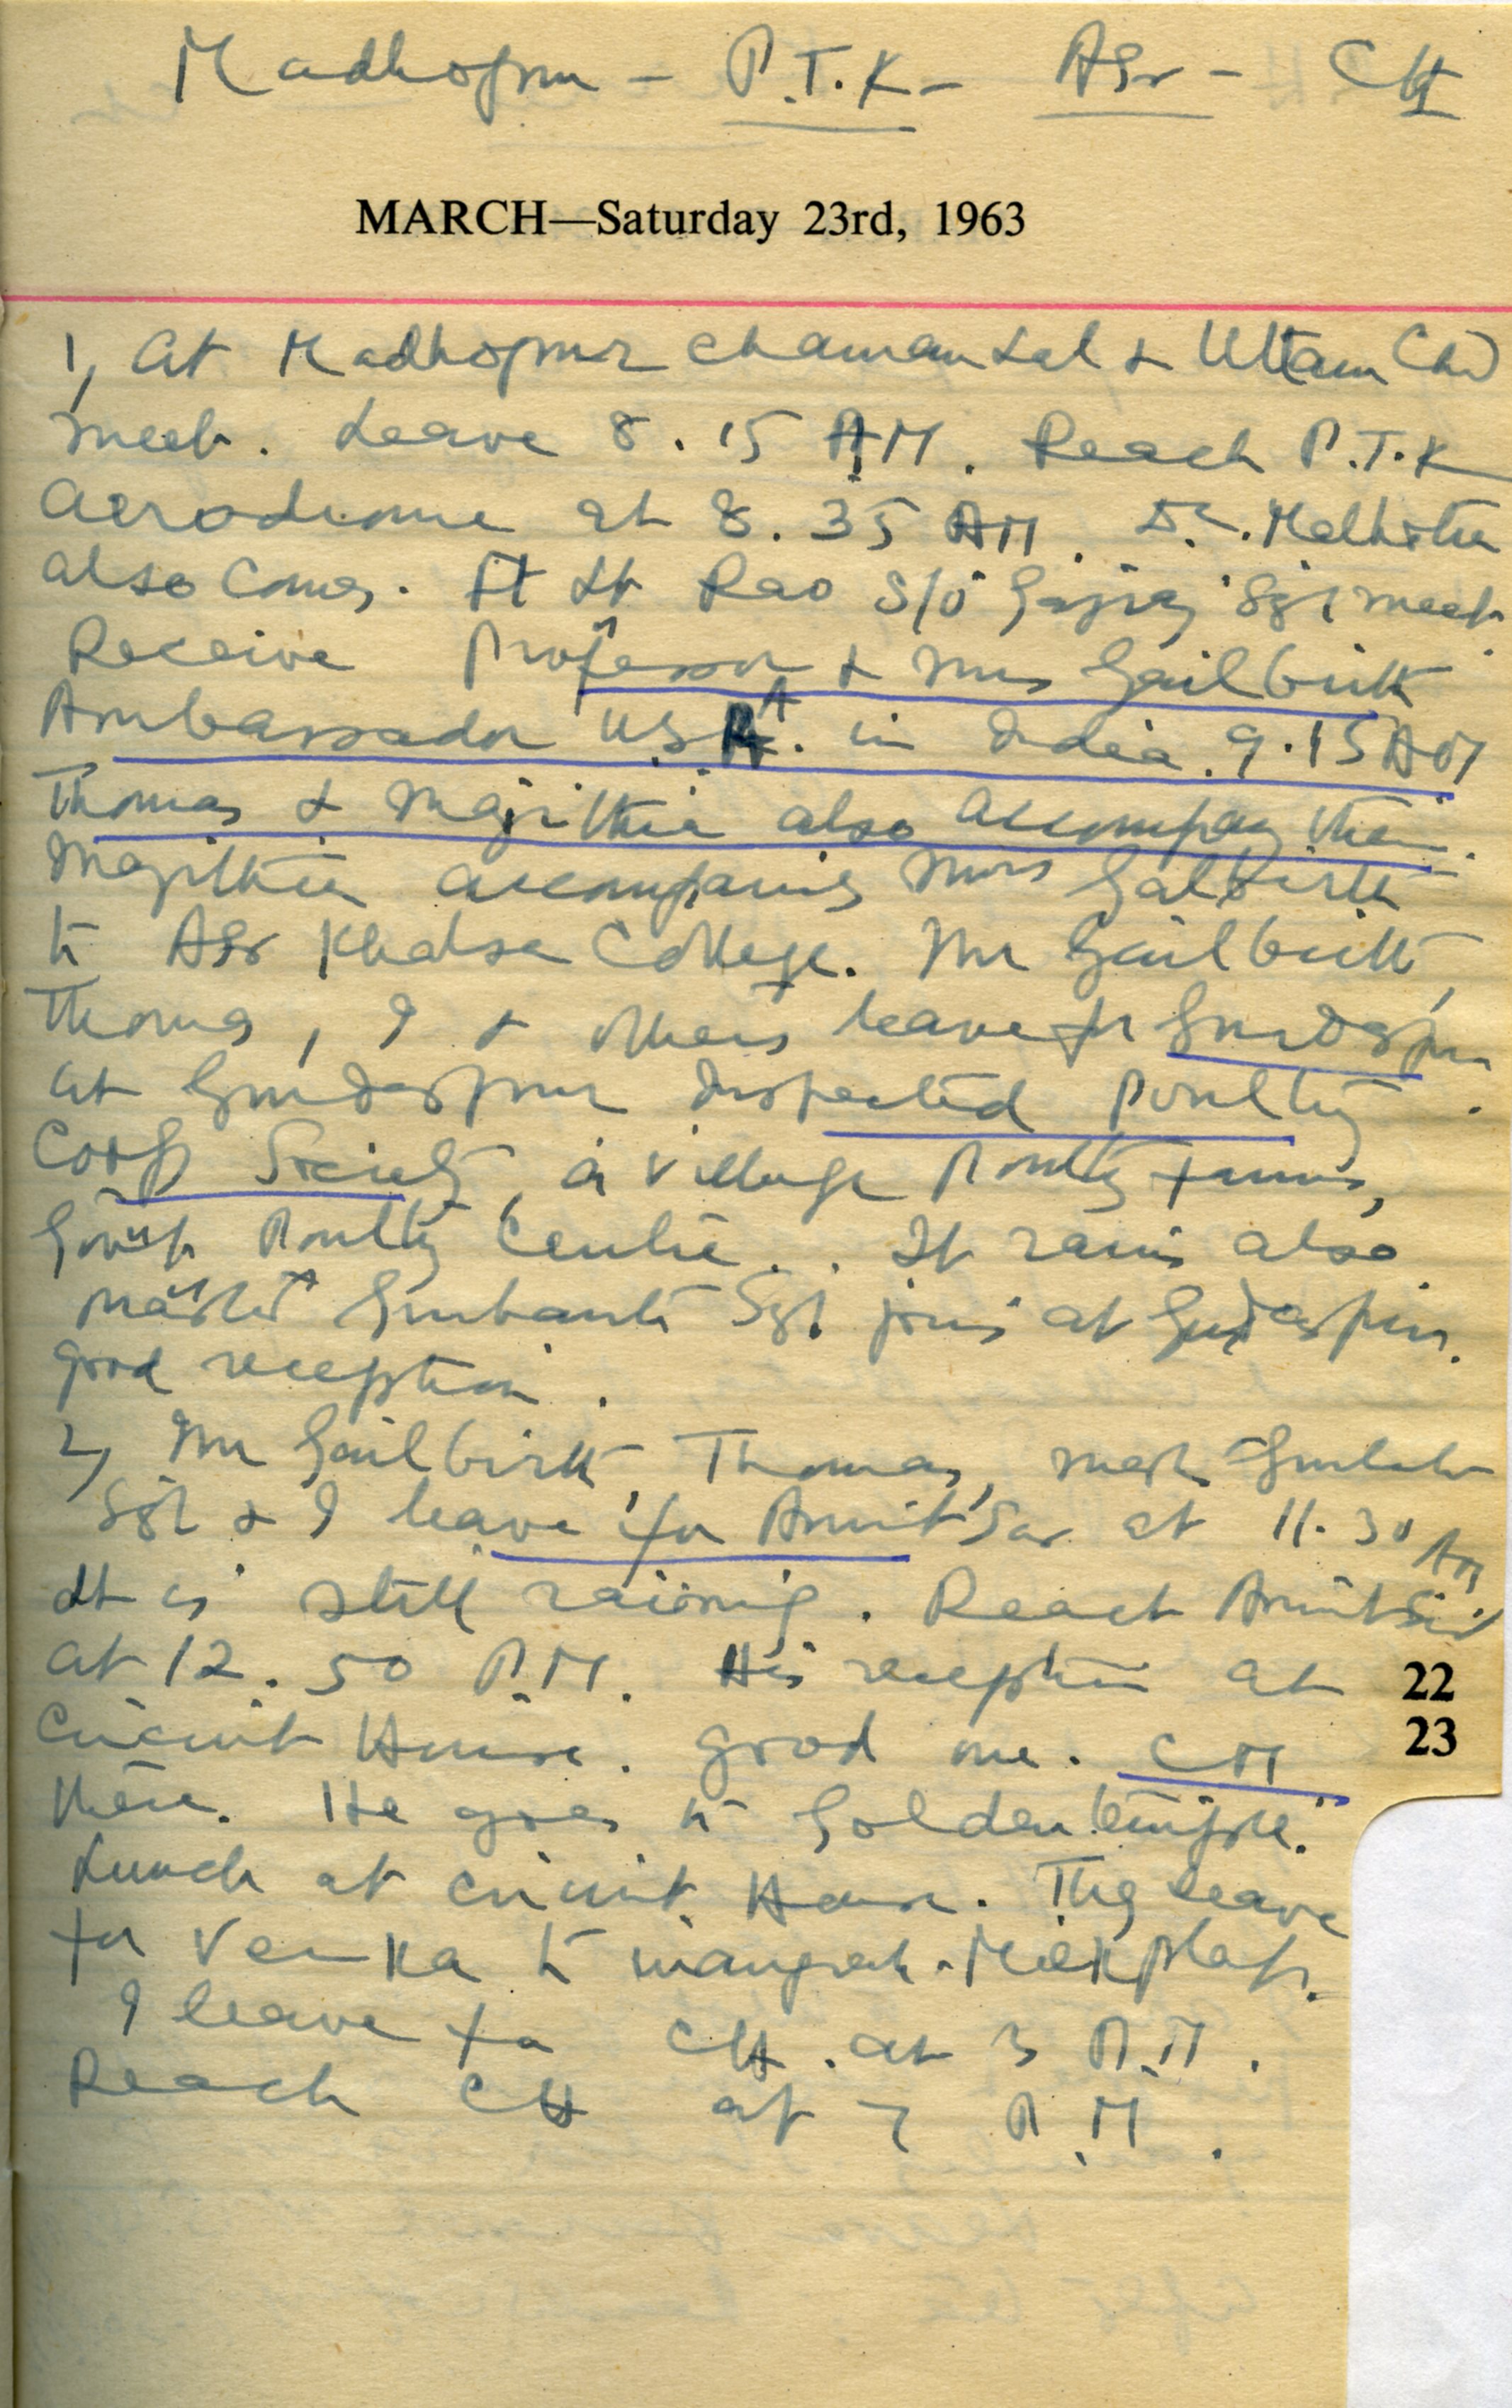 Madhopur - P.T.K - ASr - CH
MARCH—Saturday 23rd, 1963
1, At Madhopur Chaman Lal & Uttam Chd
meet. Leave 8.15 AM. Reach P.T.K
Aerodrome at 8.35 AM. Dr. Malhotra
also comes. Ft Lt Rao S/o Gajraj Sgh meet
Receive Professor & Mrs Gailbirth
Ambassador USA. in India 9.15 AM
Thomas & Majithia also accompany them.
Majithia accompanies Mrs Galbirth
to ASr Khalsa College. Mr Gailbirth,
Thomas, I & others leave for Gurdaspur
At Gurdaspur Inspected Poultry
Coop Society, a village Poultry Farms,
Govt Poultry Centre. It rains also
Master Gurbanta Sgh joins at Gurdaspur.
good reception.
2, Mr Gailbirth, Thomas, Mast Gurbanta
Sgh & I leave for Amritsar at 11.30 AM
It is still raining. Reach Amritsar
at 12.50 P.M. His reception at
Circuit House. good one. CM
there. He goes to Golden temple.
Lunch at Circuit House. They leave
for Verka to inaugrate Milk Plant.
I leave for CH. at 3 P.M.
Reach CH at 7 P.M.
22
23